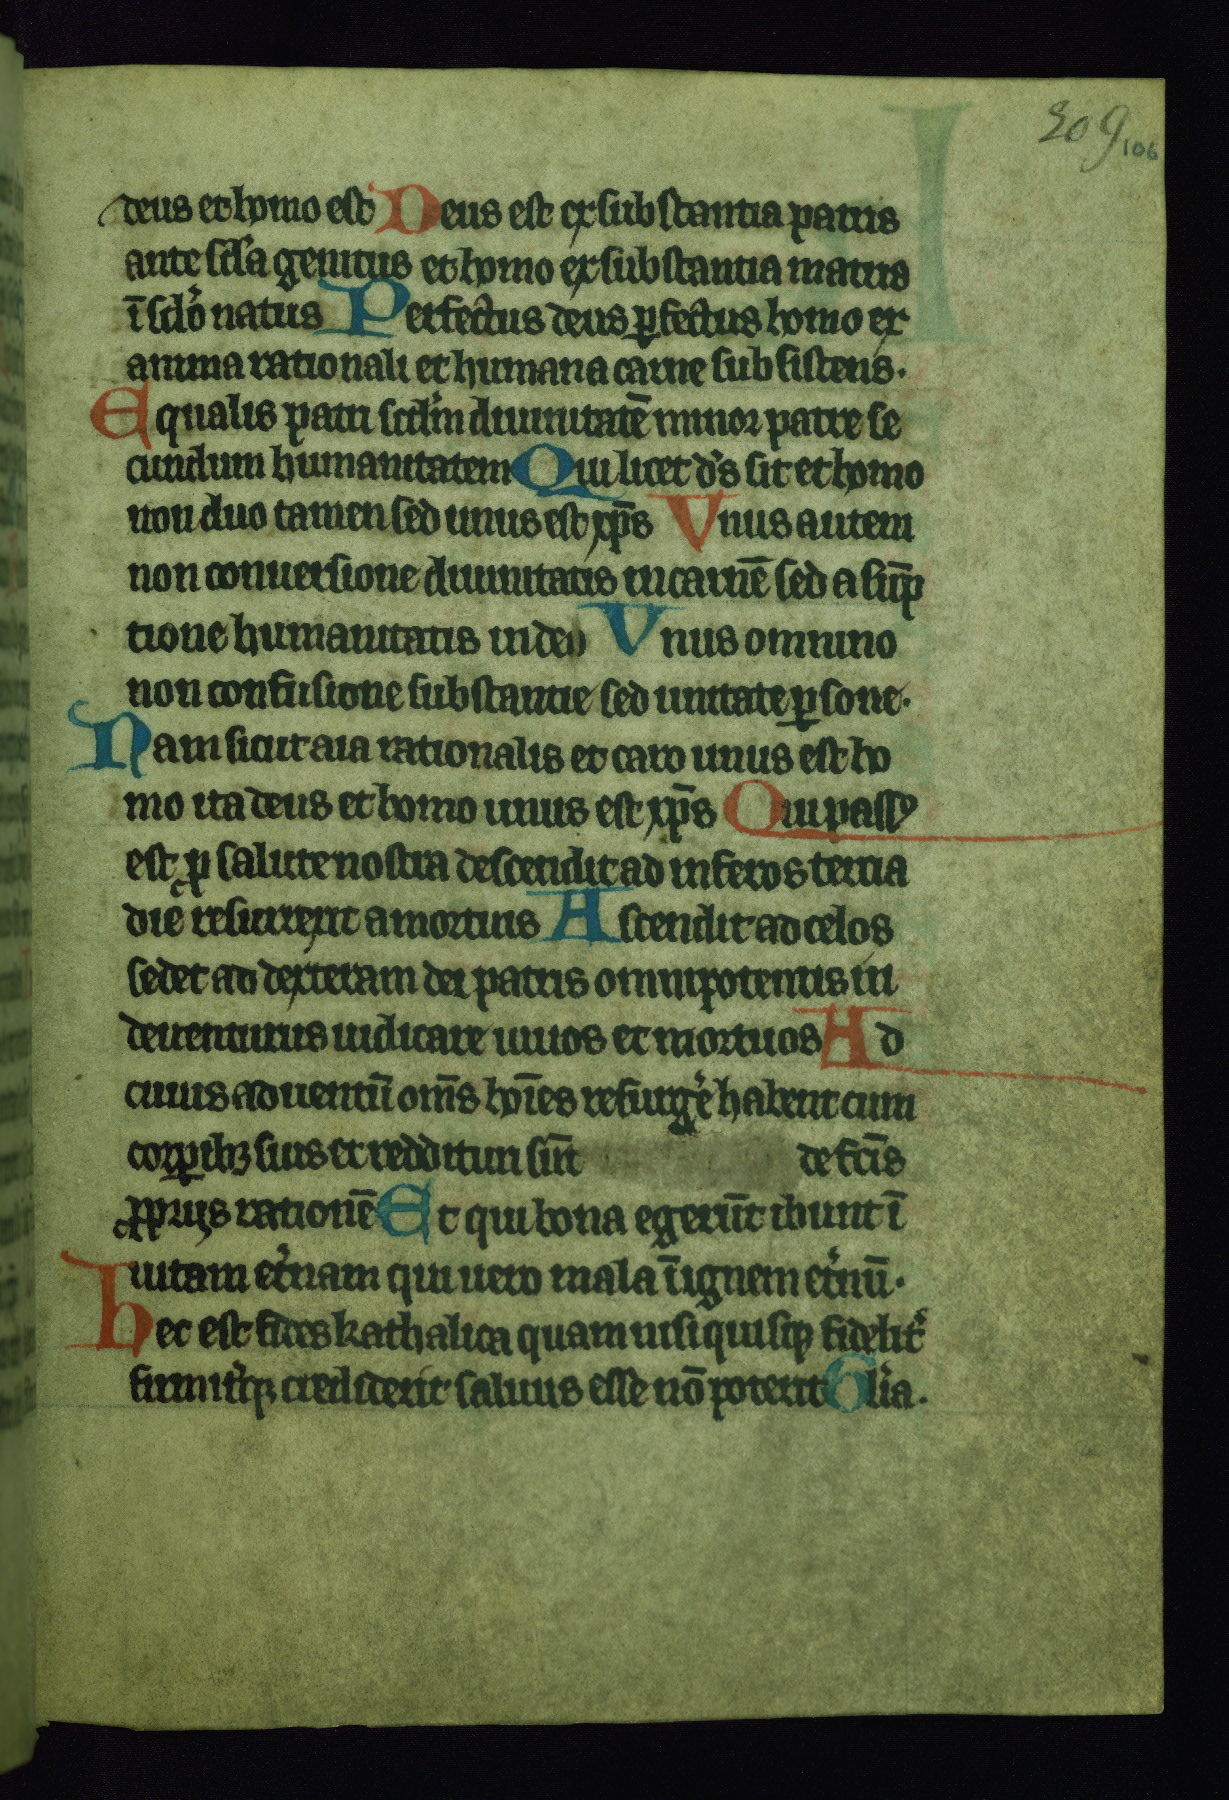 209
106
deus et homo est Deus est ex substantia patris
ante sc̄la genitus et homo ex substantia matris
ī sc̄lo natus Perfectus deus ꝑfectus homo ex
anima rationali et humana carne subsistens.
Equalis patri scd̄m diuinitatē minor patre se
cundum humanitatem Qui licet d̄s sit et homo
non duo tamen sed unus est xp̄s Vnus autem
non conuersione diuinitatis in carnē sed asūp
tione humanitatis in deū Vnus omnino
non confusione substantie sed unitate ꝑsone.
Nam sicut aīa rationalis et caro unus est ho
mo ita deus et homo unus est xp̄s Qui passꝰ
est ꝓ salute nostra descendit ad inferos tertia
die resurrexit a mortuis Ascendit ad celos
sedet ad dexteram dei patris omnipotentis in
de uenturus iudicare uiuos et mortuos Ad
cuius aduentū om̄s hoīes resurgē habent cum
corꝑibꝫ suis et reddituri sūt de fc̄is
ꝓpriis rationē Et qui bona egerūt ibunt ī
uitam et̄nam qui uero mala ī ignem et̄nū.
Hec est fides kathalica quam nisi quisqꝫ fidelit̄
firmit̄qꝫ crediderit saluus esse nō poterit Gl̄ia.